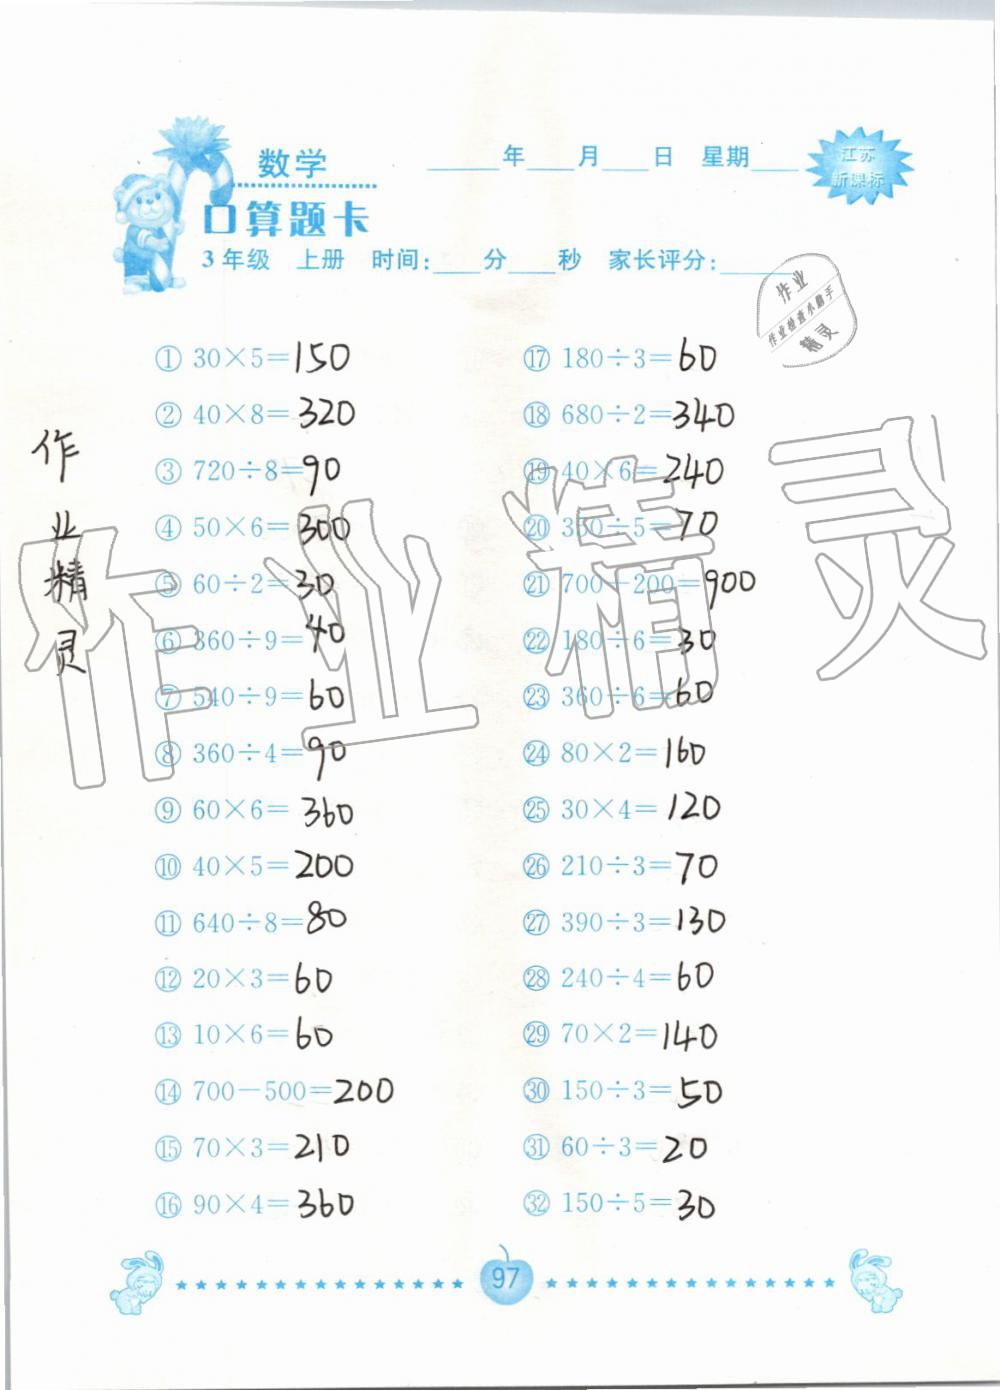 数学
____年____月____日 星期____
江苏
新课标
口算题卡
3年级 上册 时间:____分____秒 家长评分:____
作业
作业检查小助手
精灵
① 30×5=150
② 40×8=320
③ 720÷8=90
④ 50×6=300
⑤ 60÷2=30
⑥ 360÷9=40
⑦ 540÷9=60
⑧ 360÷4=90
⑨ 60×6=360
⑩ 40×5=200
⑪ 640÷8=80
⑫ 20×3=60
⑬ 10×6=60
⑭ 700-500=200
⑮ 70×3=210
⑯ 90×4=360
⑰ 180÷3=60
⑱ 680÷2=340
⑲ 40×6=240
⑳ 350÷5=70
㉑ 700+200=900
㉒ 180÷6=30
㉓ 360÷6=60
㉔ 80×2=160
㉕ 30×4=120
㉖ 210÷3=70
㉗ 390÷3=130
㉘ 240÷4=60
㉙ 70×2=140
㉚ 150÷3=50
㉛ 60÷3=20
㉜ 150÷5=30
作业精灵
作业精灵
97